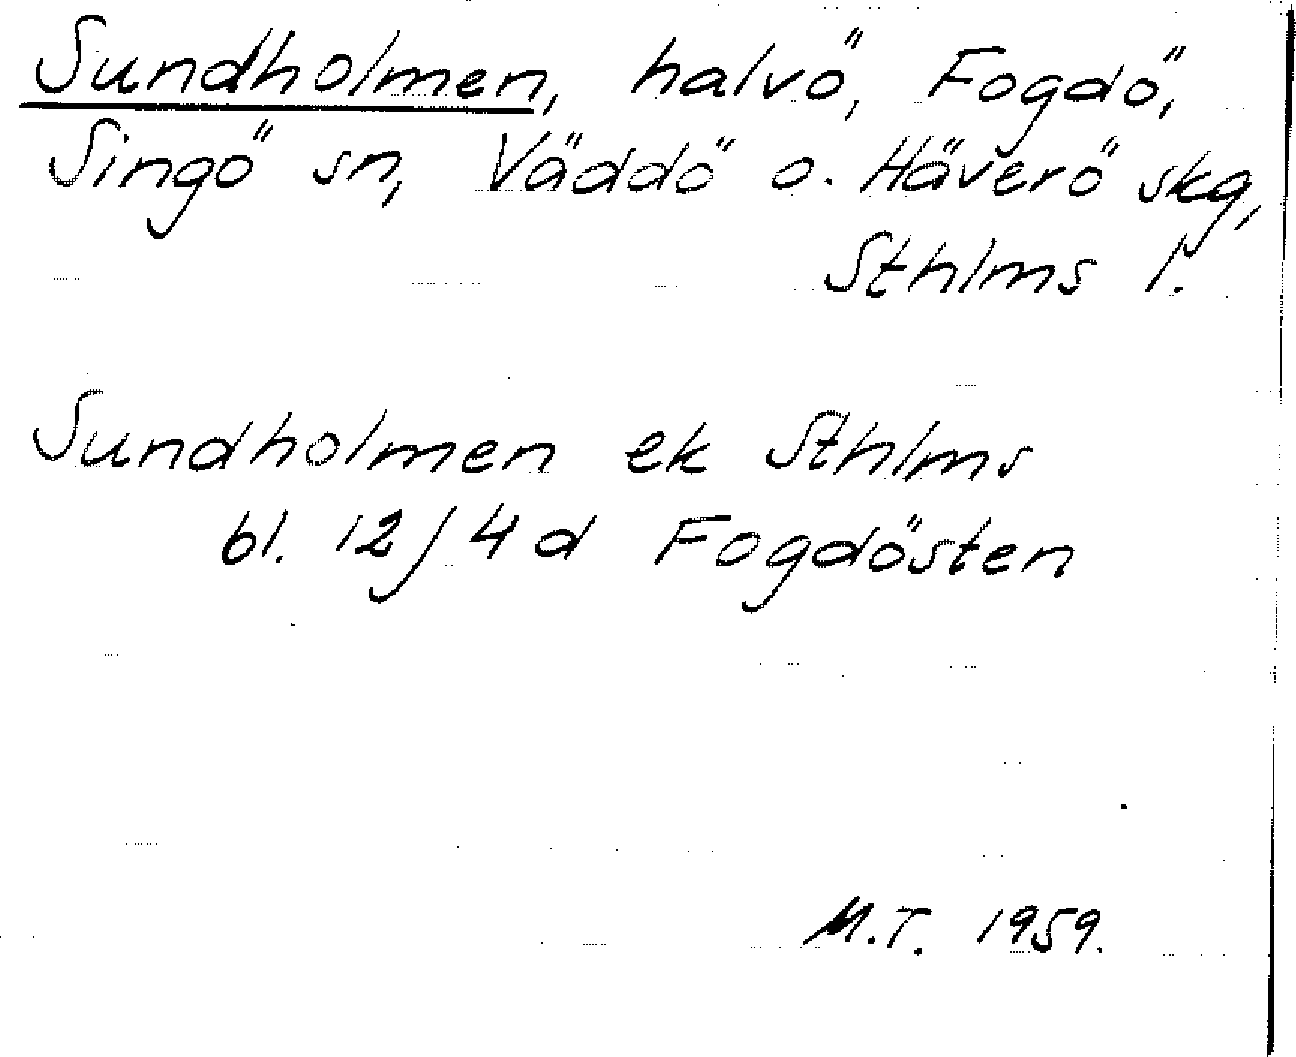 Sundholmen, halvö, Fogdö,
Singö sn, Väddö o. Häverö skg,
Sthlms l.
Sundholmen ek Sthlms
bl. 12/4d Fogdösten
M.T. 1959.